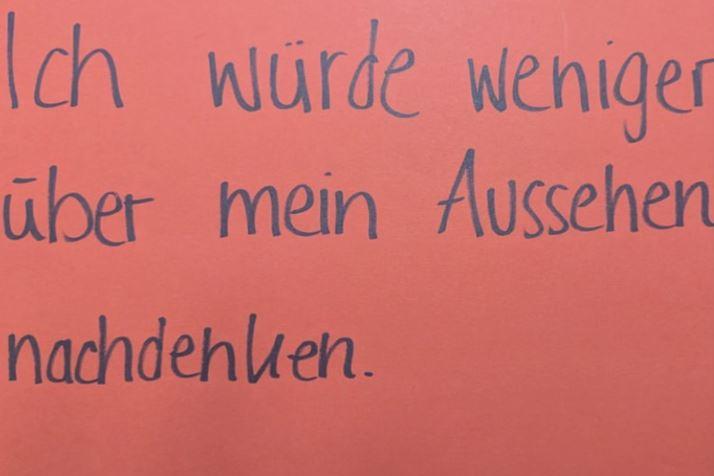 Ich würde weniger
über mein Aussehen
nachdenken.